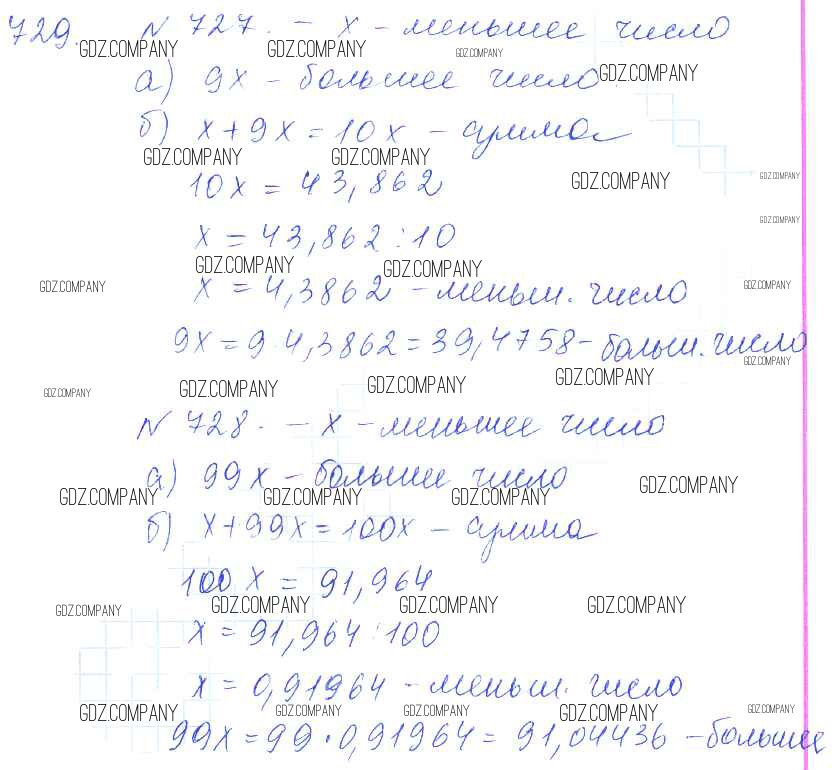 729. N 727. – x – меньшее число
GDZ.COMPANY GDZ.COMPANY GDZ.COMPANY
а) 9x – большее число GDZ.COMPANY
б) x + 9x = 10x – сумма
GDZ.COMPANY GDZ.COMPANY
10x = 43,862 GDZ.COMPANY GDZ.COMPANY
GDZ.COMPANY
x = 43,862 : 10
GDZ.COMPANY GDZ.COMPANY
GDZ.COMPANY x = 4,3862 – меньш. число GDZ.COMPANY
9x = 9 · 4,3862 = 39,4758 – больш. число
GDZ.COMPANY
GDZ.COMPANY GDZ.COMPANY GDZ.COMPANY GDZ.COMPANY
N 728. – x – меньшее число
а) 99x – большее число
GDZ.COMPANY GDZ.COMPANY GDZ.COMPANY GDZ.COMPANY
б) x + 99x = 100x – сумма
100x = 91,964
GDZ.COMPANY GDZ.COMPANY GDZ.COMPANY GDZ.COMPANY
x = 91,964 : 100
x = 0,91964 – меньш. число
GDZ.COMPANY GDZ.COMPANY GDZ.COMPANY GDZ.COMPANY GDZ.COMPANY
99x = 99 · 0,91964 = 91,04436 – большее